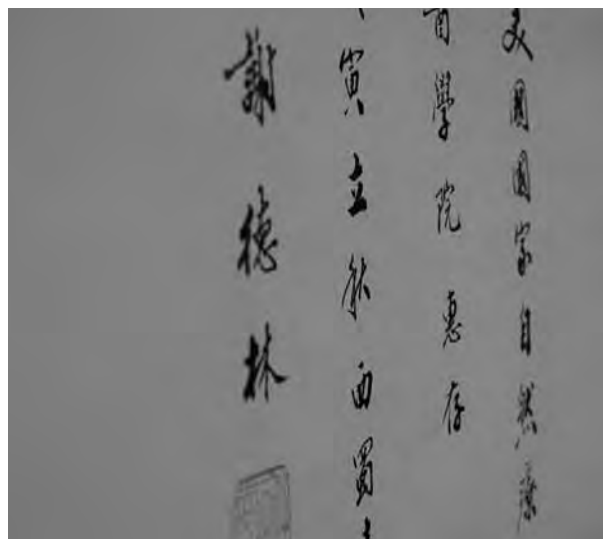 美國國家自然療
學院惠存
寅立秋西蜀
謝德林